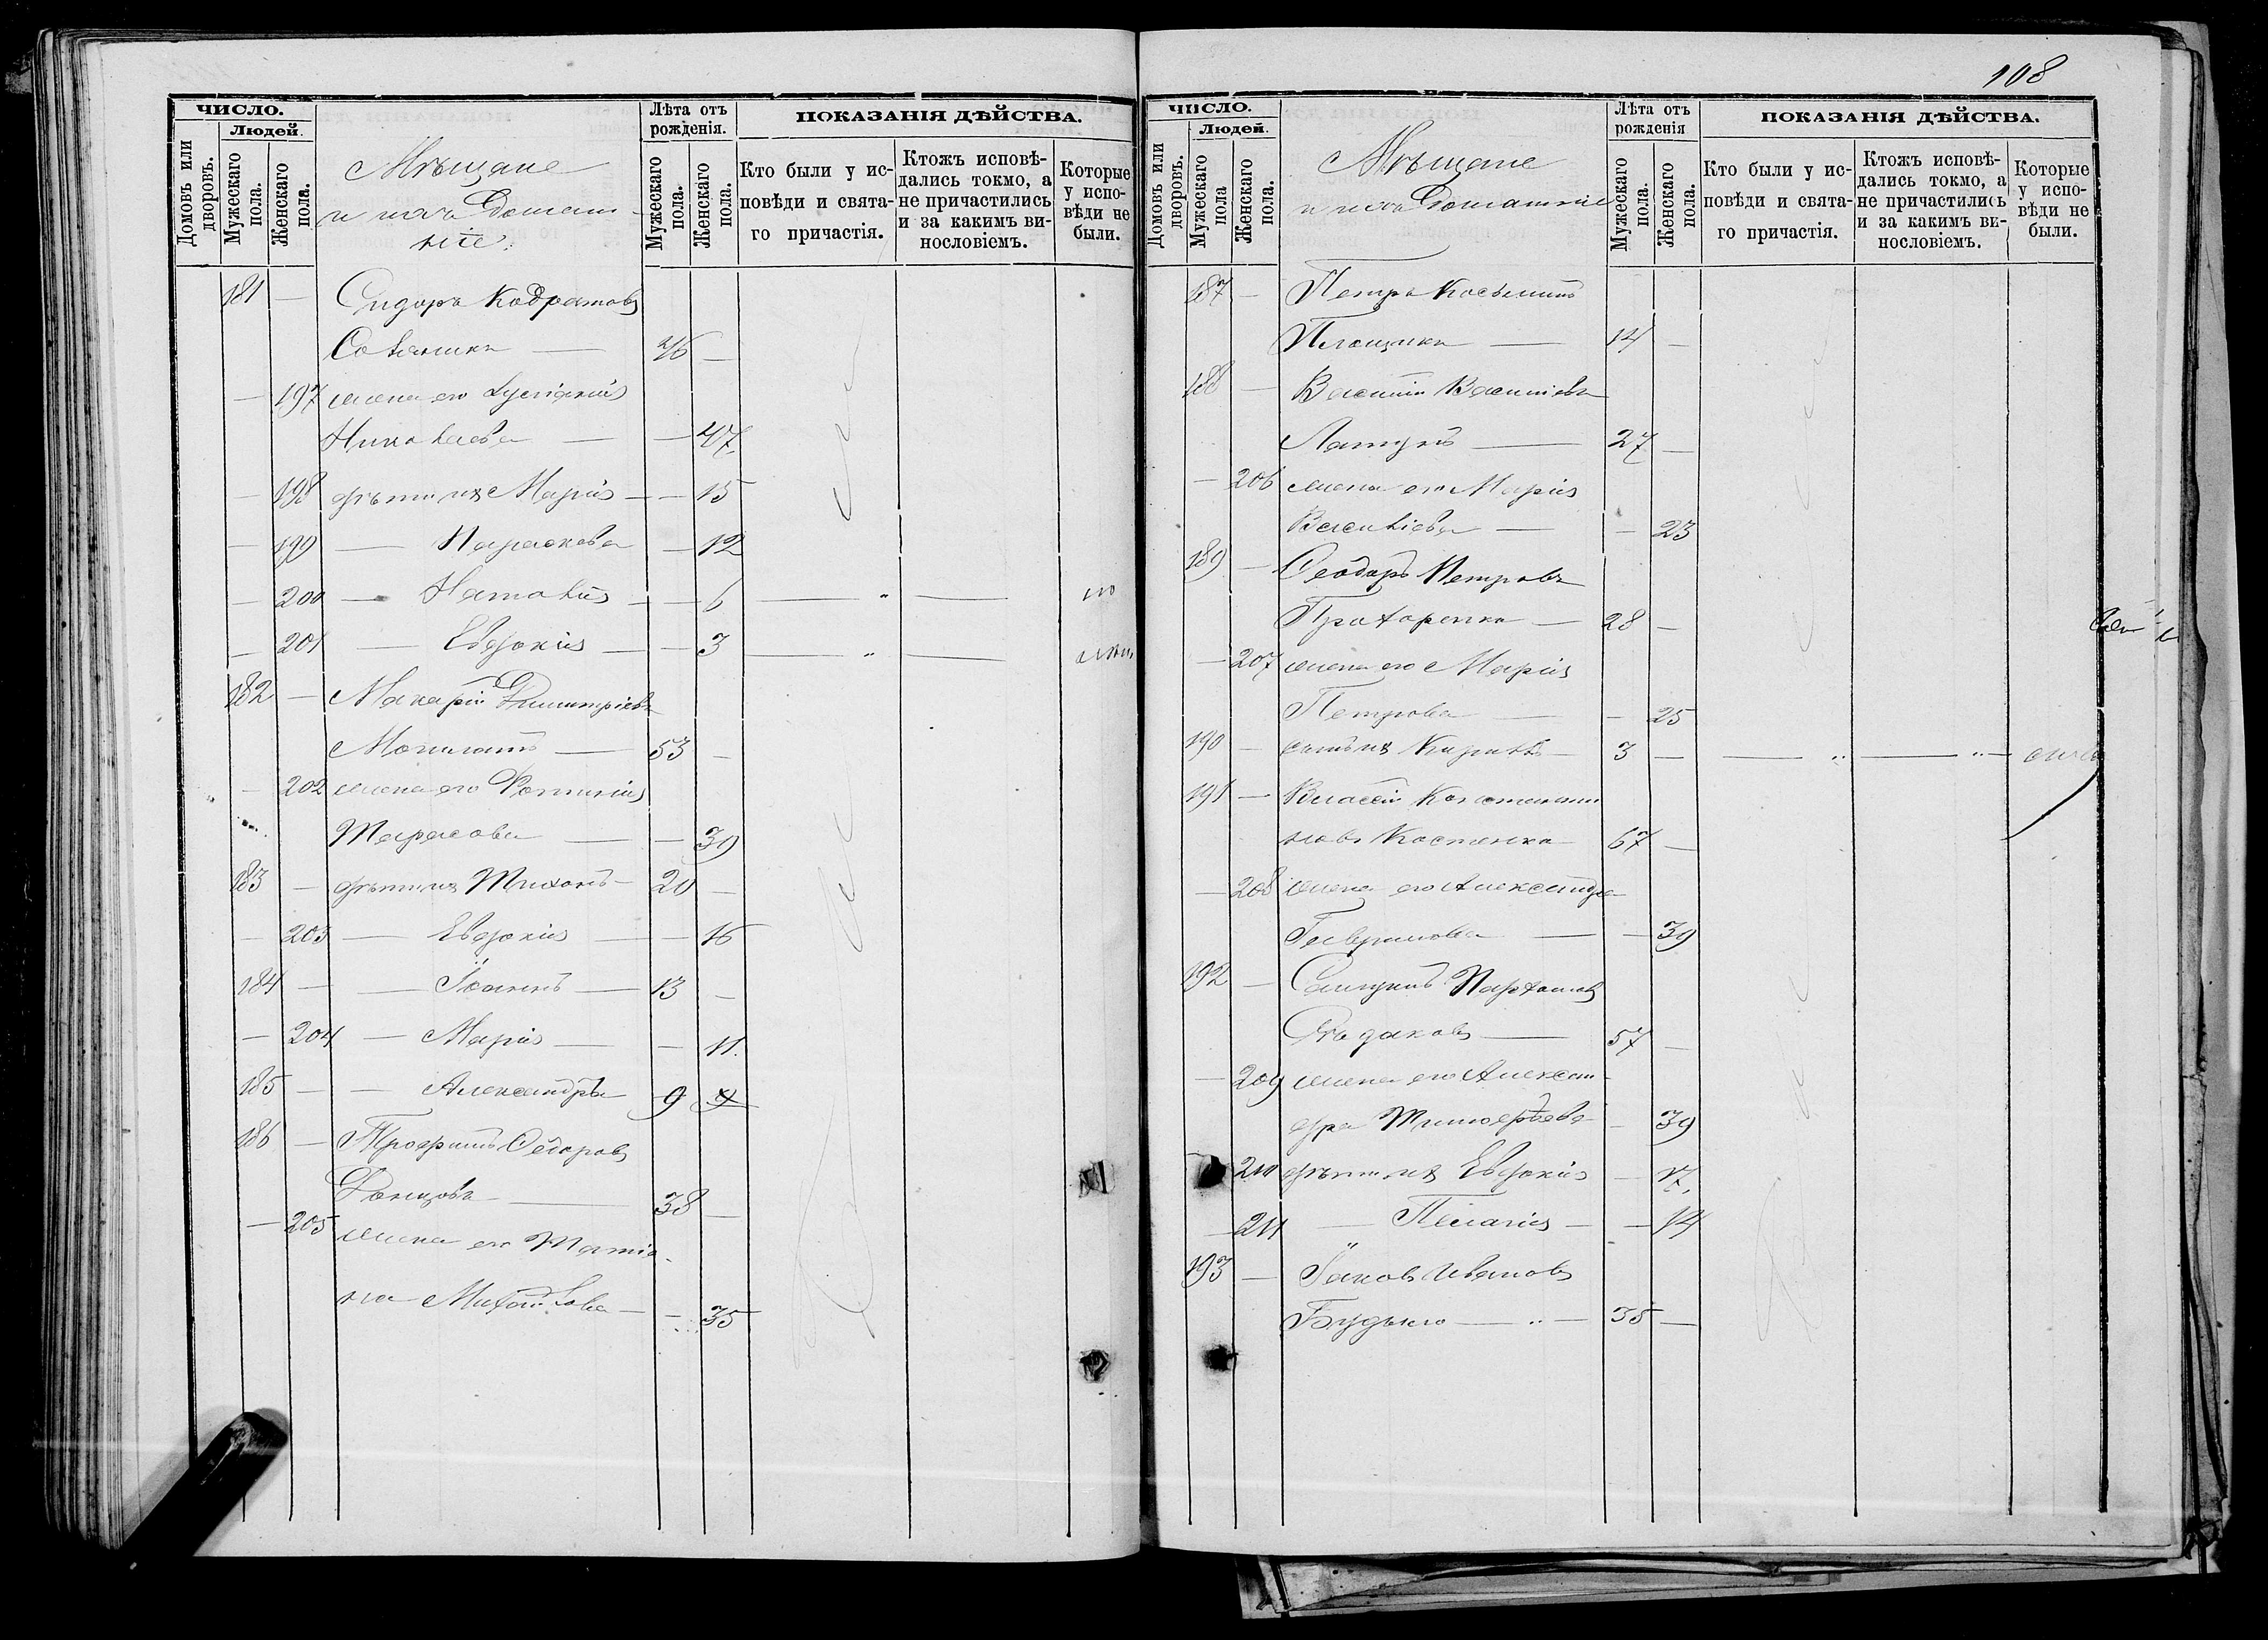 ЧИСЛО.
Людей.
Домовъ или дворовъ.
Мужескаго пола.
Женскаго пола.
Мѣщане
и ихъ Домаш-
ніе.
Лѣта отъ рожденія.
Мужескаго пола.
Женскаго пола.
ПОКАЗАНІЯ ДѢЙСТВА.
Кто были у ис-
повѣди и свята-
го причастія.
Ктожъ исповѣ-
дались токмо, а
не причастились
и за какимъ ви-
нословіемъ.
Которые
у испо-
вѣди не
были.
181 — Сидоръ Кодратовъ
46 —
— 197 жена его
Николаева — — 47
— 198 дѣти ихъ Марія — — 15
— 199 — Параскева — 12
— 200 — Наталія — — 6 — " —
— 201 — Евдокія — — 3 — " —
182 — Макарій Димитріевъ
53 —
— 202 жена его
Тарасова — — 39
183 — дѣти ихъ Тихонъ — 20 —
— 203 — Евдокія — — 16
184 — — Іоаннъ — 13 —
— 204 — Марія — — 11.
185 — — Александръ 9
186 — Трофимъ Ѳедоровъ
Донцовъ — 38 —
— 205 жена его Татіа-
на Михайлова — — 35
108
ЧИСЛО.
Людей.
Домовъ или дворовъ.
Мужескаго пола
Женскаго пола.
Мѣщане
и ихъ Домашніе
Лѣта отъ рожденія
Мужескаго пола.
Женскаго пола.
ПОКАЗАНІЯ ДѢЙСТВА.
Кто были у ис-
повѣди и свята-
го причастія.
Ктожъ исповѣ-
дались токмо, а
не причастились
и за какимъ ви-
нословіемъ.
Которые
у испо-
вѣди не
были.
187 — Петръ Косьминъ
14 —
188 — Василій Васильевъ
27 —
— 206 жена его Марія
Васильева — — 23
189 — Ѳеодоръ Петровъ
Прохоренко — 28 —
— 207 жена его Марія
Петрова — — 25
190 — сынъ ихъ Кириллъ — 3 — — " — " —
191 — Власій Константи-
новъ Костенко 67 —
— 208 жена его Александра
Гаврилова — — 39
192 — Парѳеновъ
57 —
— 209 жена его Алексан-
дра Тимофѣева — 39
210 дѣти ихъ Евдокія — 17.
— 211 — Пелагія — — 14
193 — Іаковъ Ивановъ
Будько — " — 35 —